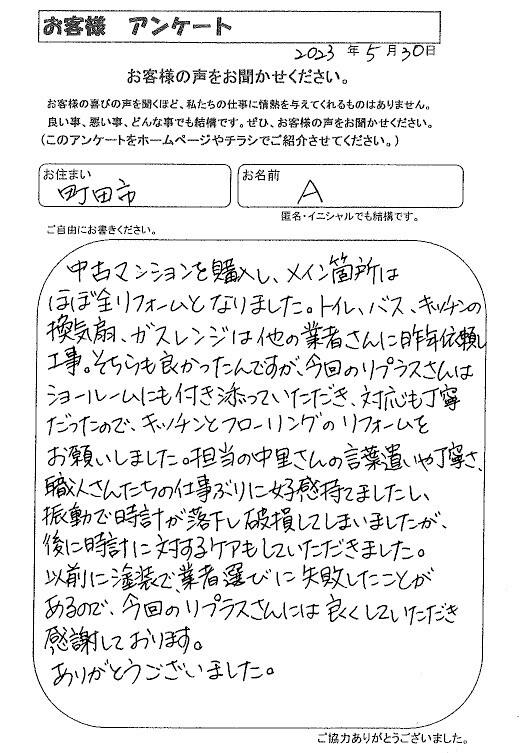 お客様 アンケート
2023 年 5 月 30 日
お客様の声をお聞かせください。
お客様の喜びの声を聞くほど、私たちの仕事に情熱を与えてくれるものはありません。
良い事、悪い事、どんな事でも結構です。ぜひ、お客様の声をお聞かせください。
(このアンケートをホームページやチラシでご紹介させてください。)
お住まい
町田市
お名前
A
匿名・イニシャルでも結構です。
ご自由にお書きください。
中古マンションを購入し、メイン箇所は
ほぼ全リフォームとなりました。トイレ、バス、キッチンの
換気扇、ガスレンジは他の業者さんに昨年依頼し
工事。そちらも良かったんですが、今回のリプラスさんは
ショールームにも付き添っていただき、対応も丁寧
だったので、キッチンとフローリングのリフォームを
お願いしました。担当の中里さんの言葉遣いや丁寧さ、
職人さんたちの仕事ぶりに好感持てましたし、
振動で時計が落下し破損してしまいましたが、
後に時計に対するケアもしていただきました。
以前に塗装で、業者選びに失敗したことが
あるので、今回のリプラスさんには良くしていただき
感謝しております。
ありがとうございました。
ご協力ありがとうございました。